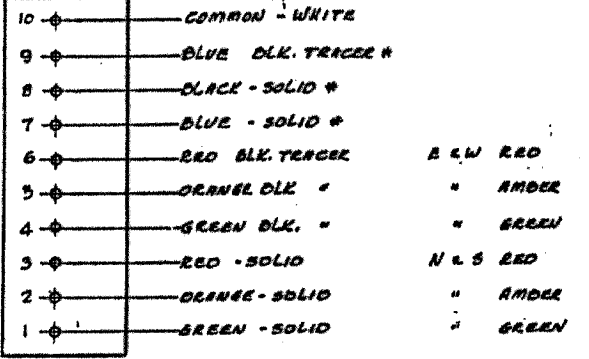 10 COMMON - WHITE
9 BLUE BLK. TRACER *
8 BLACK - SOLID *
7 BLUE - SOLID *
6 RED BLK. TRACER E & W RED
5 ORANGE BLK " " AMBER
4 GREEN BLK. " " GREEN
3 RED - SOLID N & S RED
2 ORANGE - SOLID " AMBER
1 GREEN - SOLID " GREEN